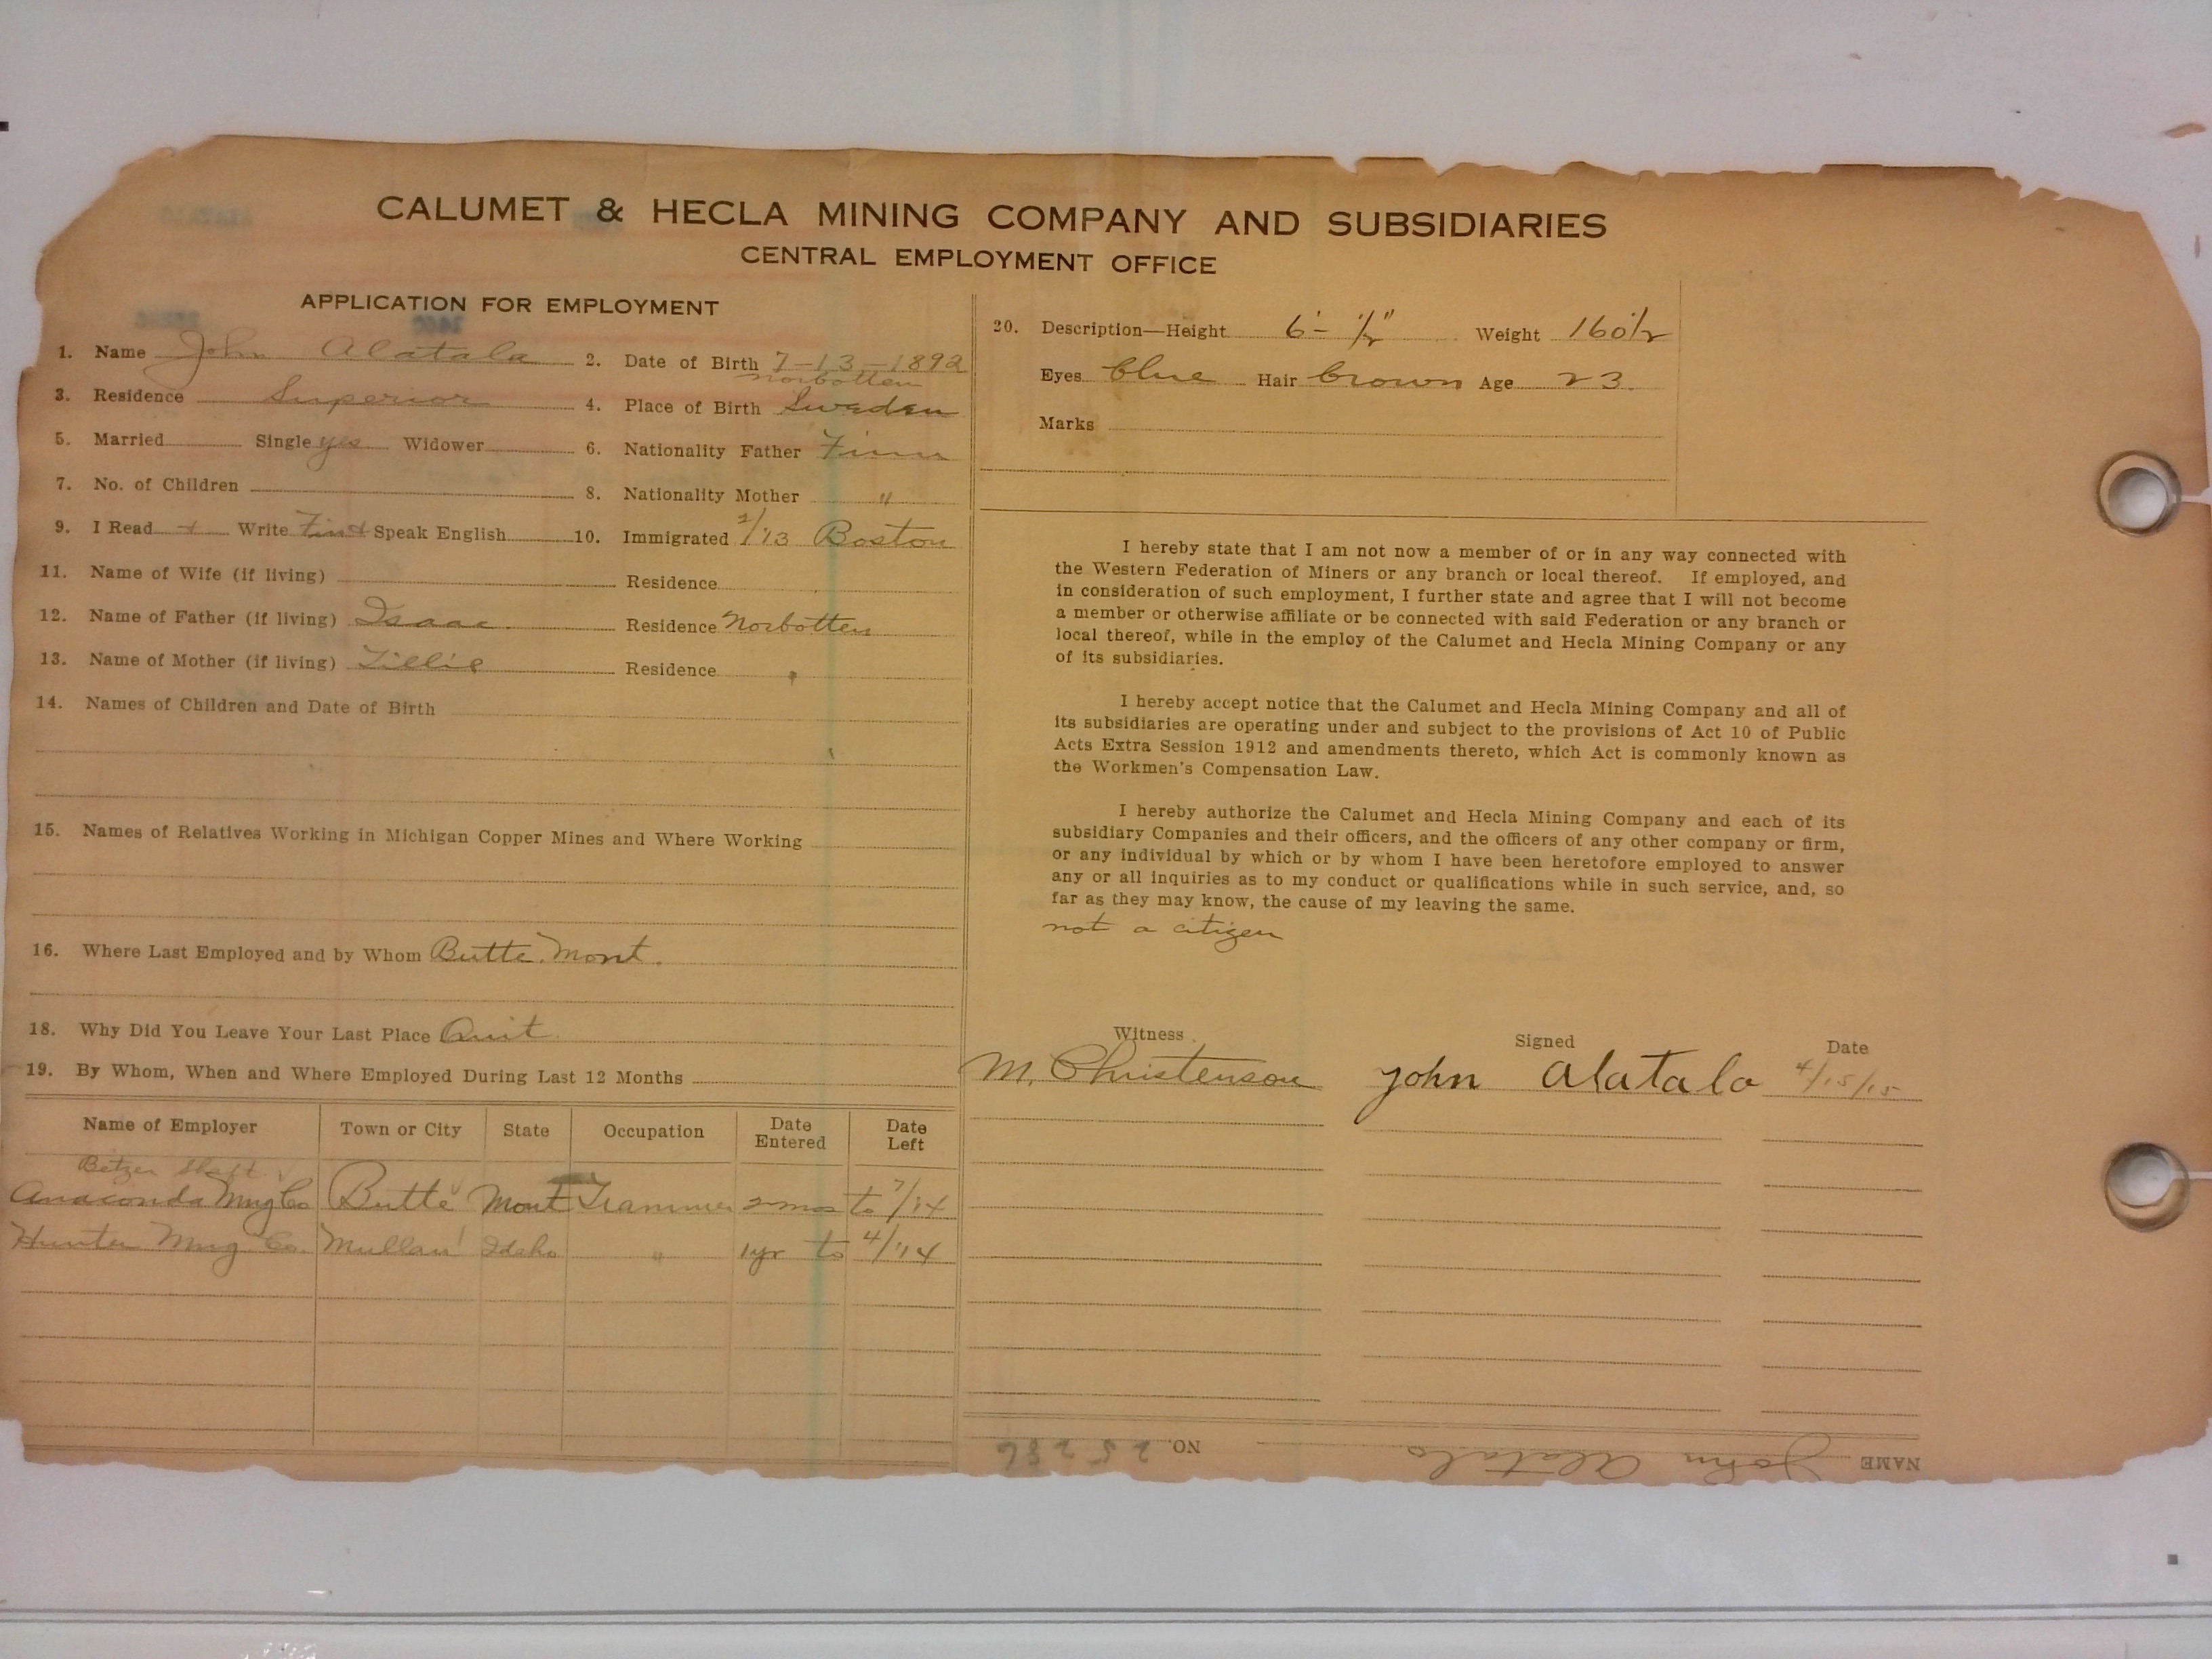 CALUMET & HECLA MINING COMPANY AND SUBSIDIARIES
CENTRAL EMPLOYMENT OFFICE
APPLICATION FOR EMPLOYMENT
1. Name John Alatala 2. Date of Birth 7-13-1892
Norbotten
3. Residence Superior 4. Place of Birth Sweden
5. Married Single yes Widower 6. Nationality Father Finn
7. No. of Children 8. Nationality Mother "
9. I Read + Write Speak English 10. Immigrated 2/13 Boston
11. Name of Wife (if living) Residence
12. Name of Father (if living) Isaac Residence Norbotten
13. Name of Mother (if living) Tillie Residence "
14. Names of Children and Date of Birth
15. Names of Relatives Working in Michigan Copper Mines and Where Working
16. Where Last Employed and by Whom Butte, Mont.
18. Why Did You Leave Your Last Place Quit
19. By Whom, When and Where Employed During Last 12 Months
Name of Employer Town or City State Occupation Date Entered Date Left
Shaft
Anaconda Mng Co Butte Mont Trammer 2 mos to 7/14
Hunter Mng. Co. Mullan Idaho " 1yr to 4/'14
20. Description—Height 6'- 1/2" Weight 160 1/2
Eyes blue Hair brown Age 23.
Marks
I hereby state that I am not now a member of or in any way connected with
the Western Federation of Miners or any branch or local thereof. If employed, and
in consideration of such employment, I further state and agree that I will not become
a member or otherwise affiliate or be connected with said Federation or any branch or
local thereof, while in the employ of the Calumet and Hecla Mining Company or any
of its subsidiaries.
I hereby accept notice that the Calumet and Hecla Mining Company and all of
its subsidiaries are operating under and subject to the provisions of Act 10 of Public
Acts Extra Session 1912 and amendments thereto, which Act is commonly known as
the Workmen's Compensation Law.
I hereby authorize the Calumet and Hecla Mining Company and each of its
subsidiary Companies and their officers, and the officers of any other company or firm,
or any individual by which or by whom I have been heretofore employed to answer
any or all inquiries as to my conduct or qualifications while in such service, and, so
far as they may know, the cause of my leaving the same.
not a citizen
Witness Signed Date
M. Christenson John Alatalo 4/15/15
NAME John Alatalo NO. 25236